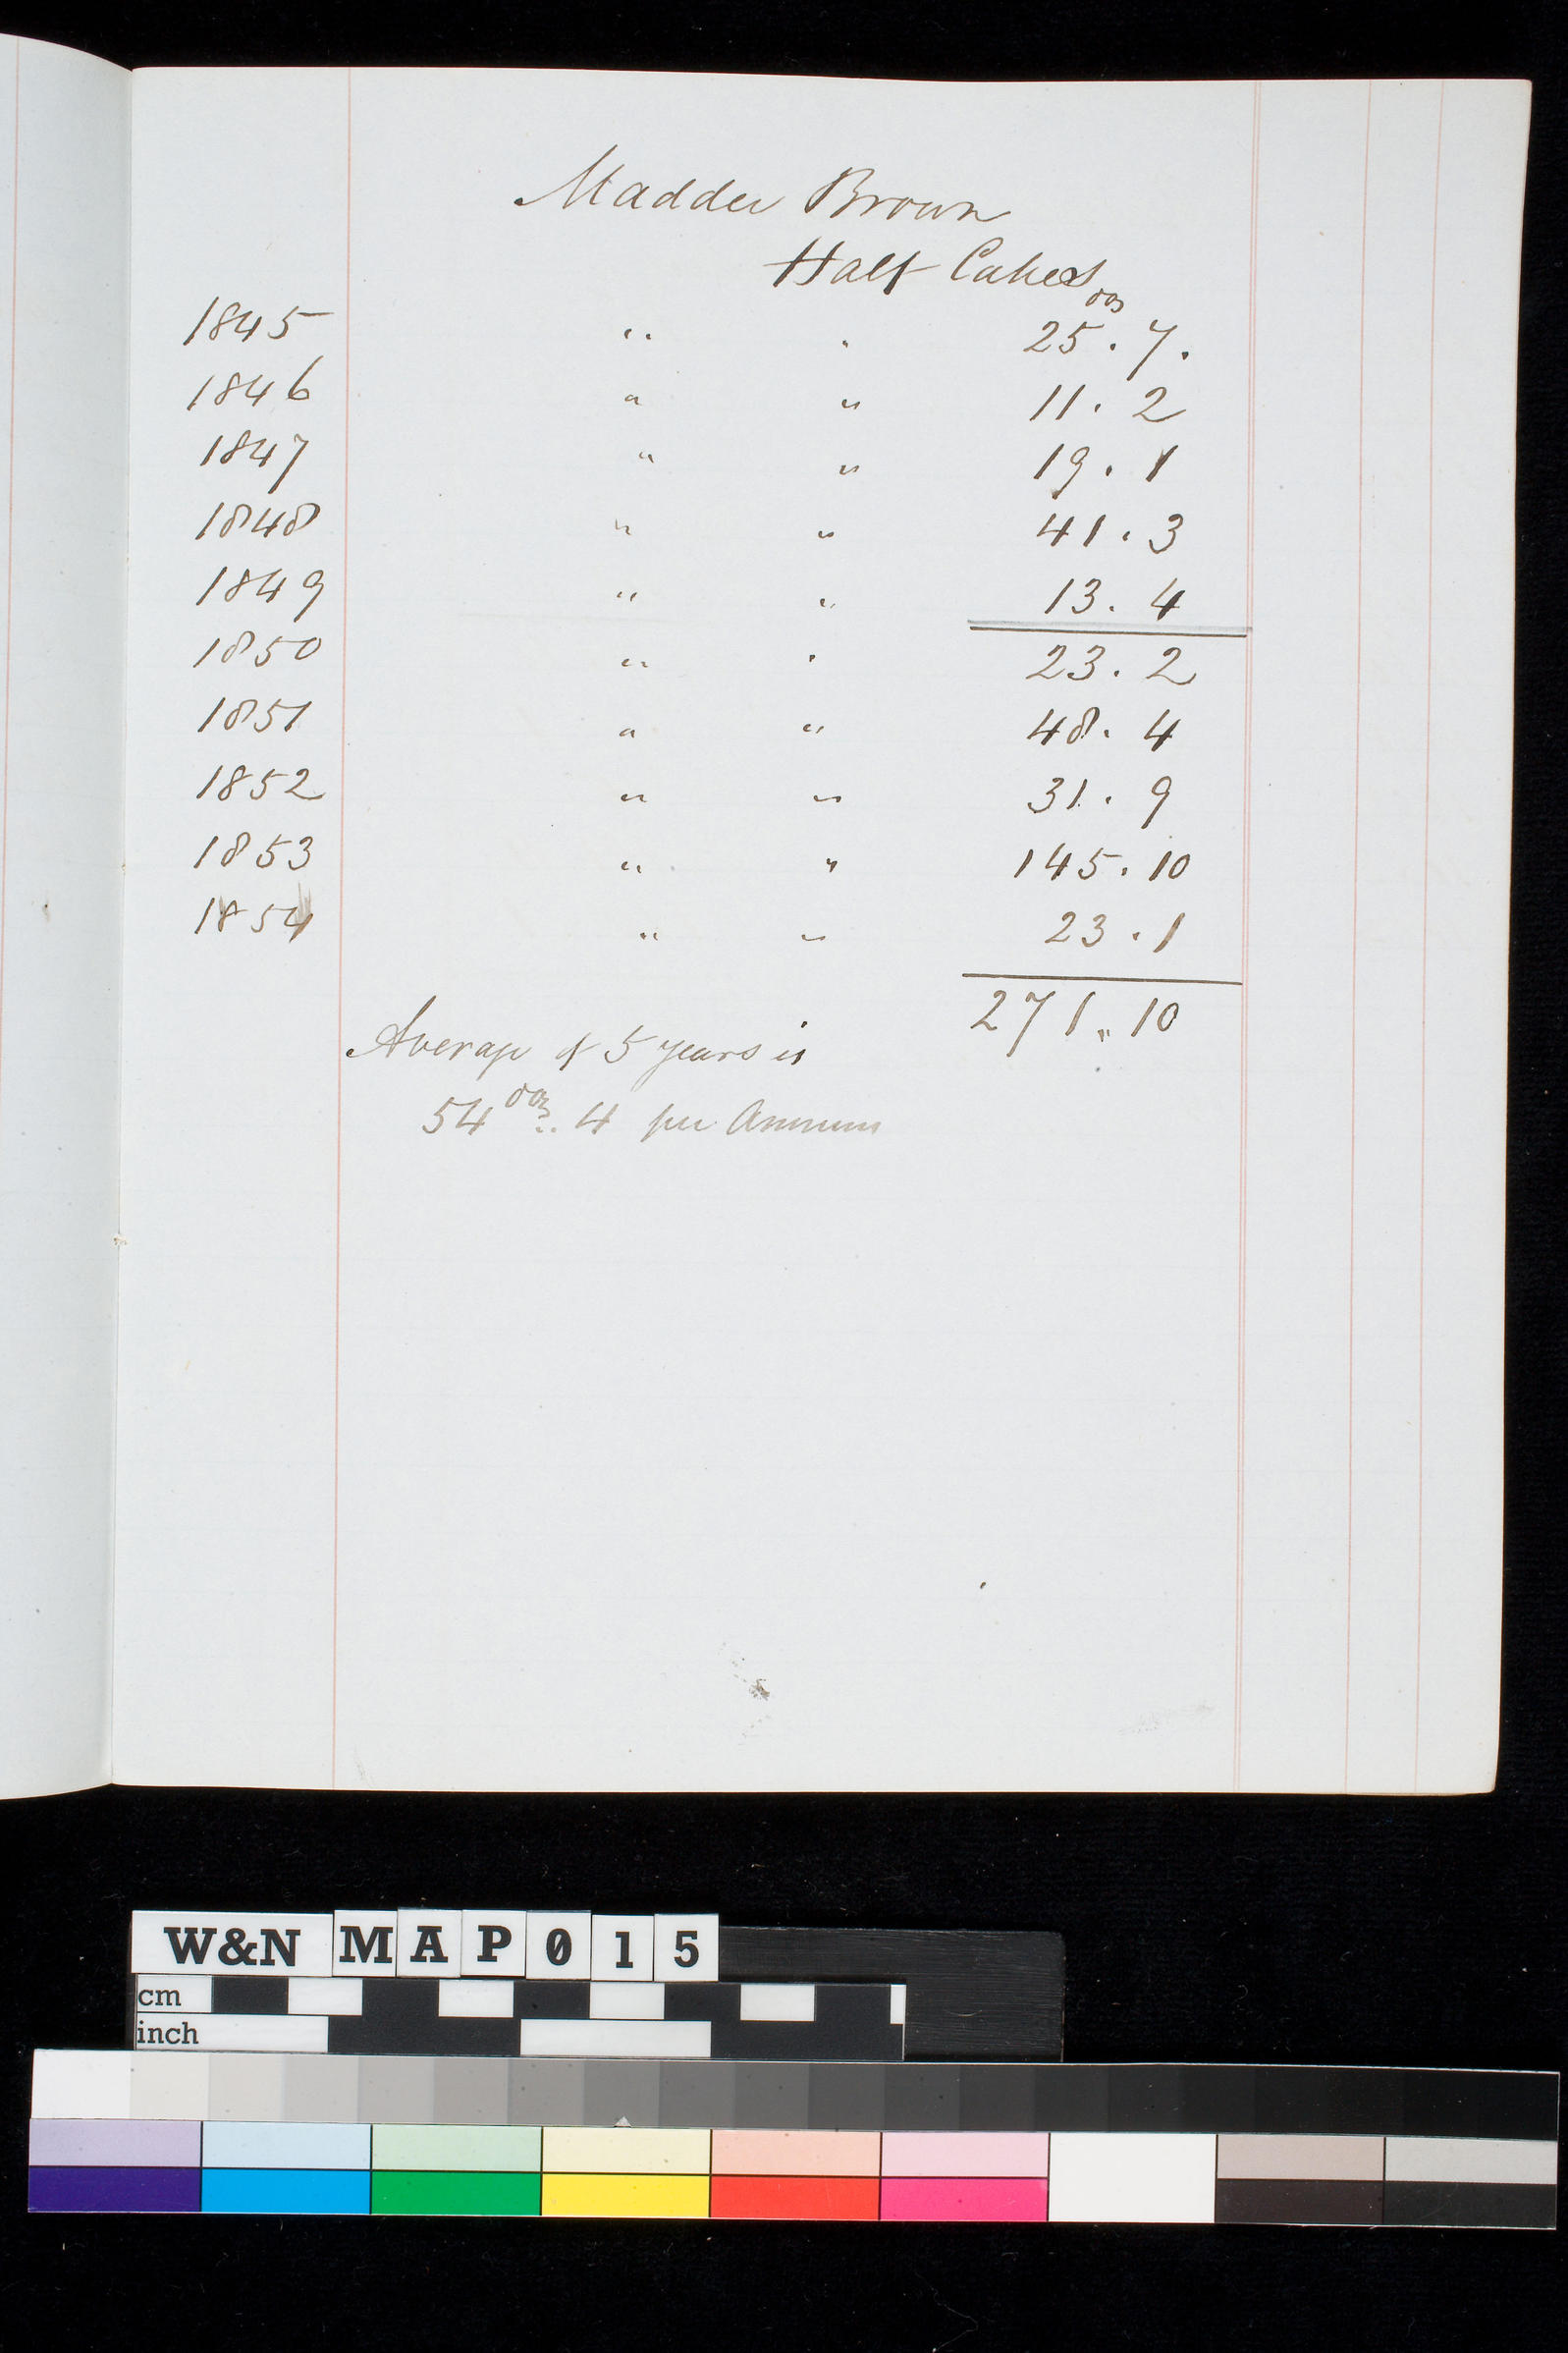 Madder Brown
Half Cakes
doz
1845 " " 25 . 7 .
1846 " " 11 . 2
1847 " " 19 . 1
1848 " " 41 . 3
1849 " " 13 . 4
1850 " " 23 . 2
1851 " " 48 . 4
1852 " " 31 . 9
1853 " " 145 . 10
1854 " " 23 . 1
271 " 10
Average of 5 years is
54 doz .. 4 per Annum
W&N MAP015
cm
inch